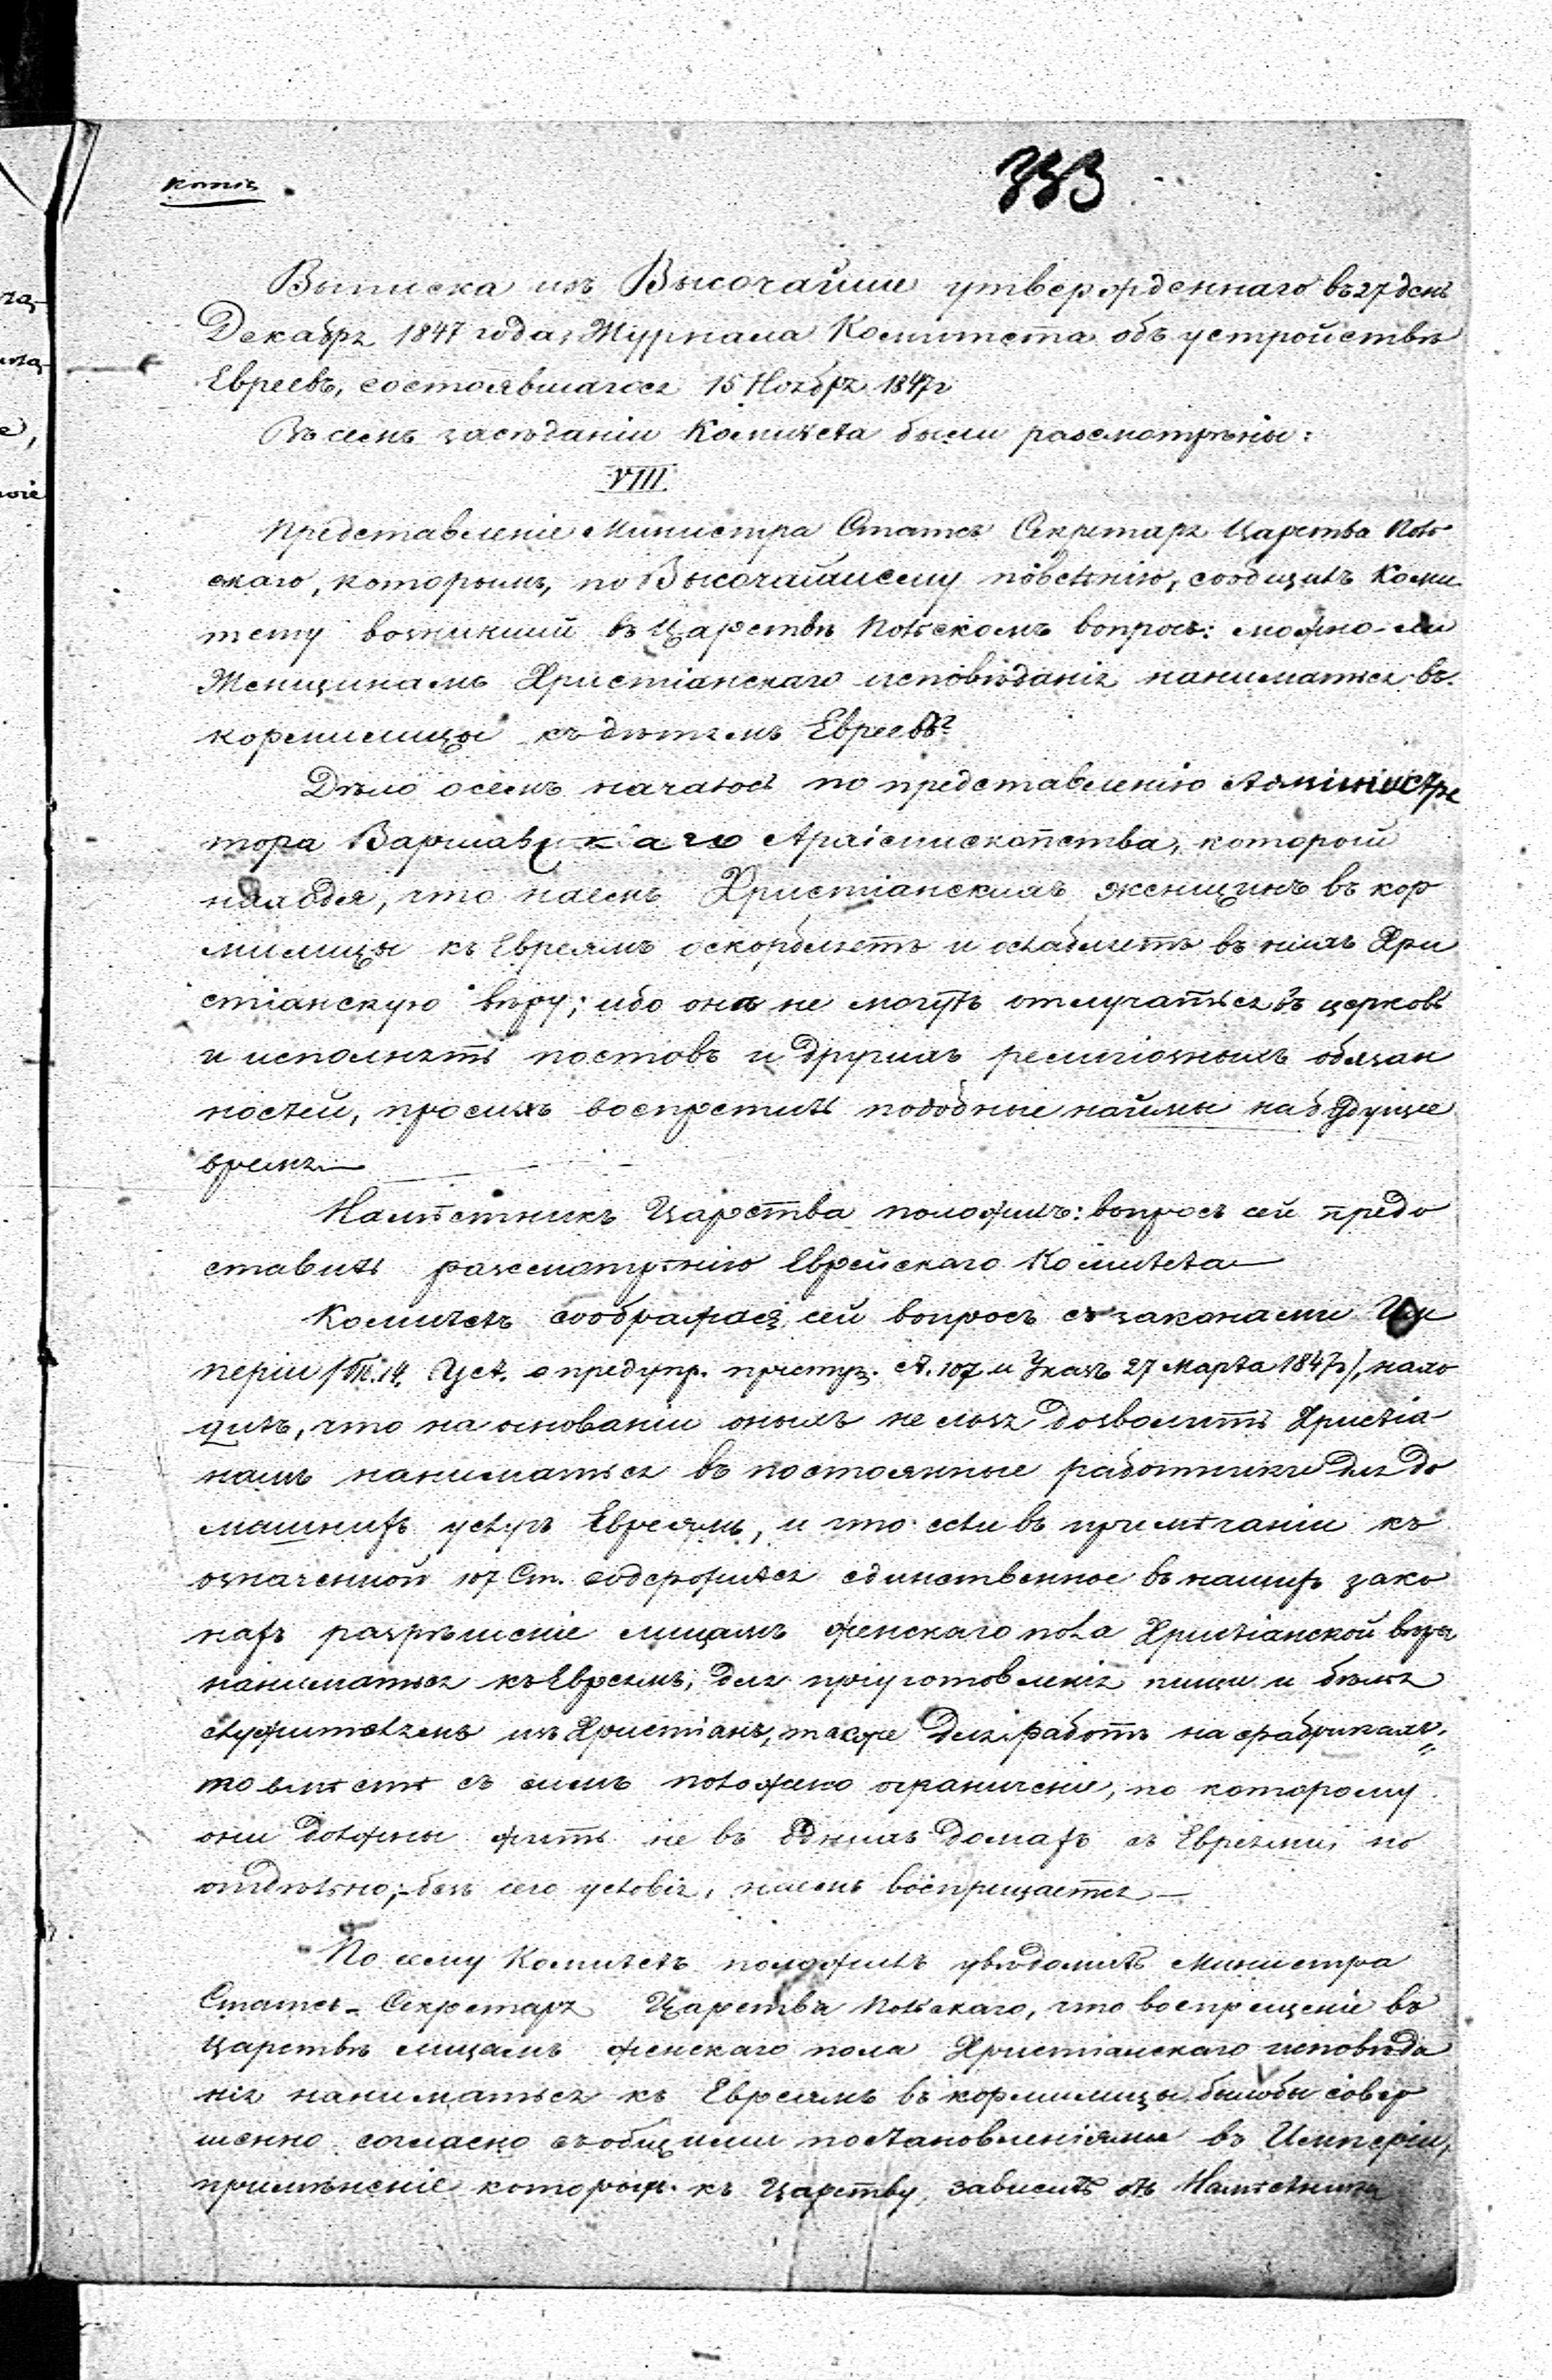 копія
333
Выписка изъ Высочайше утвержденнаго въ 27 день
Декабря 1847 года, Журнала Комитета объ устройствѣ
Евреевъ, состоявшагося 15 Ноября 1847 г
Въ семъ засѣданіи Комитета были разсмотрѣны:
VIII
Представленіе Министра Статсъ Секретаря Царства Поль
скаго, которымъ, по Высочайшему повелѣнію, сообщилъ Коми
тету возникшій въ Царствѣ Польскомъ вопросъ: можно-ли
Женщинамъ Христіанскаго исповѣданія наниматься въ
кормилицы къ дѣтямъ Евреевъ?
Дѣло о семъ началось по представленію Администра
тора Варшавскаго Архіепископства, который
находя, что наемъ Христіанскихъ женщинъ въ кор
милицы къ Евреямъ оскорбляетъ и ослабляетъ въ нихъ Хри
стіанскую вѣру; ибо онѣ не могутъ отлучаться въ церковь
и исполнять постовъ и другихъ религіозныхъ обязан
ностей, просилъ воспретить подобные наймы на будущее
время.—
Намѣстникъ Царства положилъ: вопросъ сей предо
ставить разсмотрѣнію Еврейскаго Комитета—
Комитетъ соображая сей вопросъ съ законами Им
періи /Т. 14. Уст. о предупр. преступ. ст. 107 и Указъ 27 Марта 1847 г/, нахо
дитъ, что на основаніи оныхъ нельзя дозволить Христіа
намъ наниматься въ постоянные работники для до
машнихъ услугъ Евреямъ, и что если въ примѣчаніи къ
означенной 107 Ст. содержится единственное въ нашихъ зако
нахъ разрѣшеніе лицамъ женскаго пола Христіанской вѣры
наниматься къ Евреямъ, для пріуготовленія пищи и бѣлья
служителямъ изъ Христіанъ, также для работъ на фабрикахъ,
то вмѣстѣ съ симъ положено ограниченіе, по которому
они должны жить не въ однихъ домахъ съ Евреями, но
отдѣльно;-безъ сего условія, наемъ воспрещается—
По сему Комитетъ положилъ увѣдомить Министра
Статсъ-Секретаря Царства Польскаго, что воспрещеніе въ
Царствѣ лицамъ женскаго пола Христіанскаго исповѣда
нія наниматься къ Евреямъ въ кормилицы, было бы совер
шенно согласно съ общими постановленіями въ Имперіи,
примѣненіе которыхъ къ Царству, зависитъ отъ Намѣстника